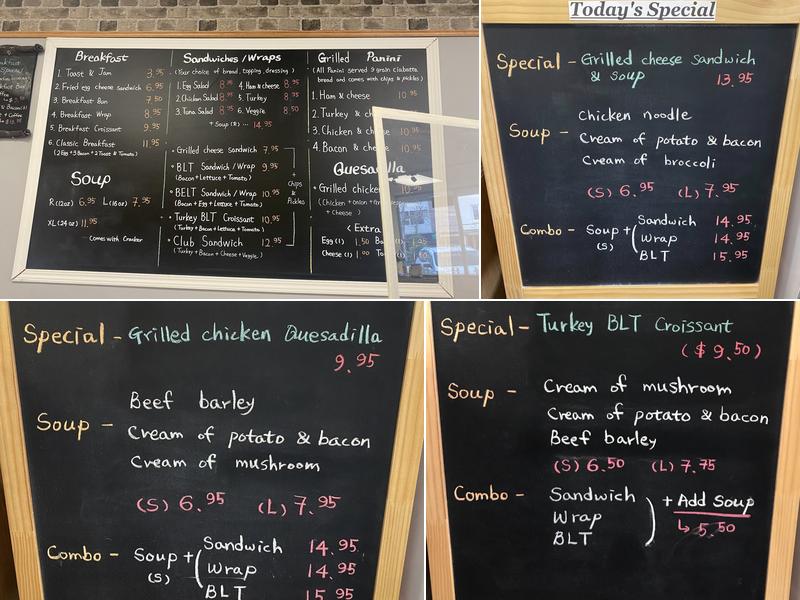 Breakfast
1. Toast & Jam 3.95
2. Fried egg cheese Sandwich 6.95
3. Breakfast Bun 7.50
4. Breakfast Wrap 8.95
5. Breakfast Croissant 9.95
6. Classic Breakfast 11.95
(2 Egg + 3 Bacon + 2 Toast & Tomato)
Soup
R (12oz) 6.95 L (16oz) 7.95
XL (24oz) 11.95
Comes with Cracker
Sandwiches / Wraps
(Your choice of bread, topping, dressing)
1. Egg Salad 8.95 4. Ham & cheese 8.95
2. Chicken Salad 8.95 5. Turkey 8.75
3. Tuna Salad 8.95 6. Veggie 8.50
+ Soup (R) ... 14.95
• Grilled cheese Sandwich 7.95
• BLT Sandwich / Wrap 9.95
(Bacon + Lettuce + Tomato)
• BELT Sandwich / Wrap 10.95
(Bacon + Egg + Lettuce + Tomato)
• Turkey BLT Croissant 10.95
(Turkey + Bacon + Lettuce + Tomato)
• Club Sandwich 12.95
(Turkey + Bacon + Cheese + Veggie)
+
Chips
&
Pickles
Grilled Panini
(All Panini served 9 grain ciabatta
bread and comes with chips & pickles)
1. Ham & cheese 10.95
2. Turkey &
3. Chicken &
4. Bacon & cheese 10.95
Quesadilla
• Grilled chicken 10.95
(Chicken + Onion +
+ Cheese)
< Extra
Egg (1) 1.50
Cheese (1) 1.00
Today's Special
Special - Grilled cheese Sandwich
& Soup 13.95
Soup - Chicken noodle
Cream of potato & bacon
Cream of broccoli
(S) 6.95 (L) 7.95
Combo - Soup + ( Sandwich 14.95
(S) Wrap 14.95
BLT 15.95
Special - Grilled chicken Quesadilla
9.95
Soup - Beef barley
Cream of potato & bacon
Cream of mushroom
(S) 6.95 (L) 7.95
Combo - Soup + ( Sandwich 14.95
(S) Wrap 14.95
BLT 15.95
Special - Turkey BLT Croissant
($ 9.50)
Soup - Cream of mushroom
Cream of potato & bacon
Beef barley
(S) 6.50 (L) 7.75
Combo - Sandwich
Wrap
BLT
) + Add Soup
↳ 5.50